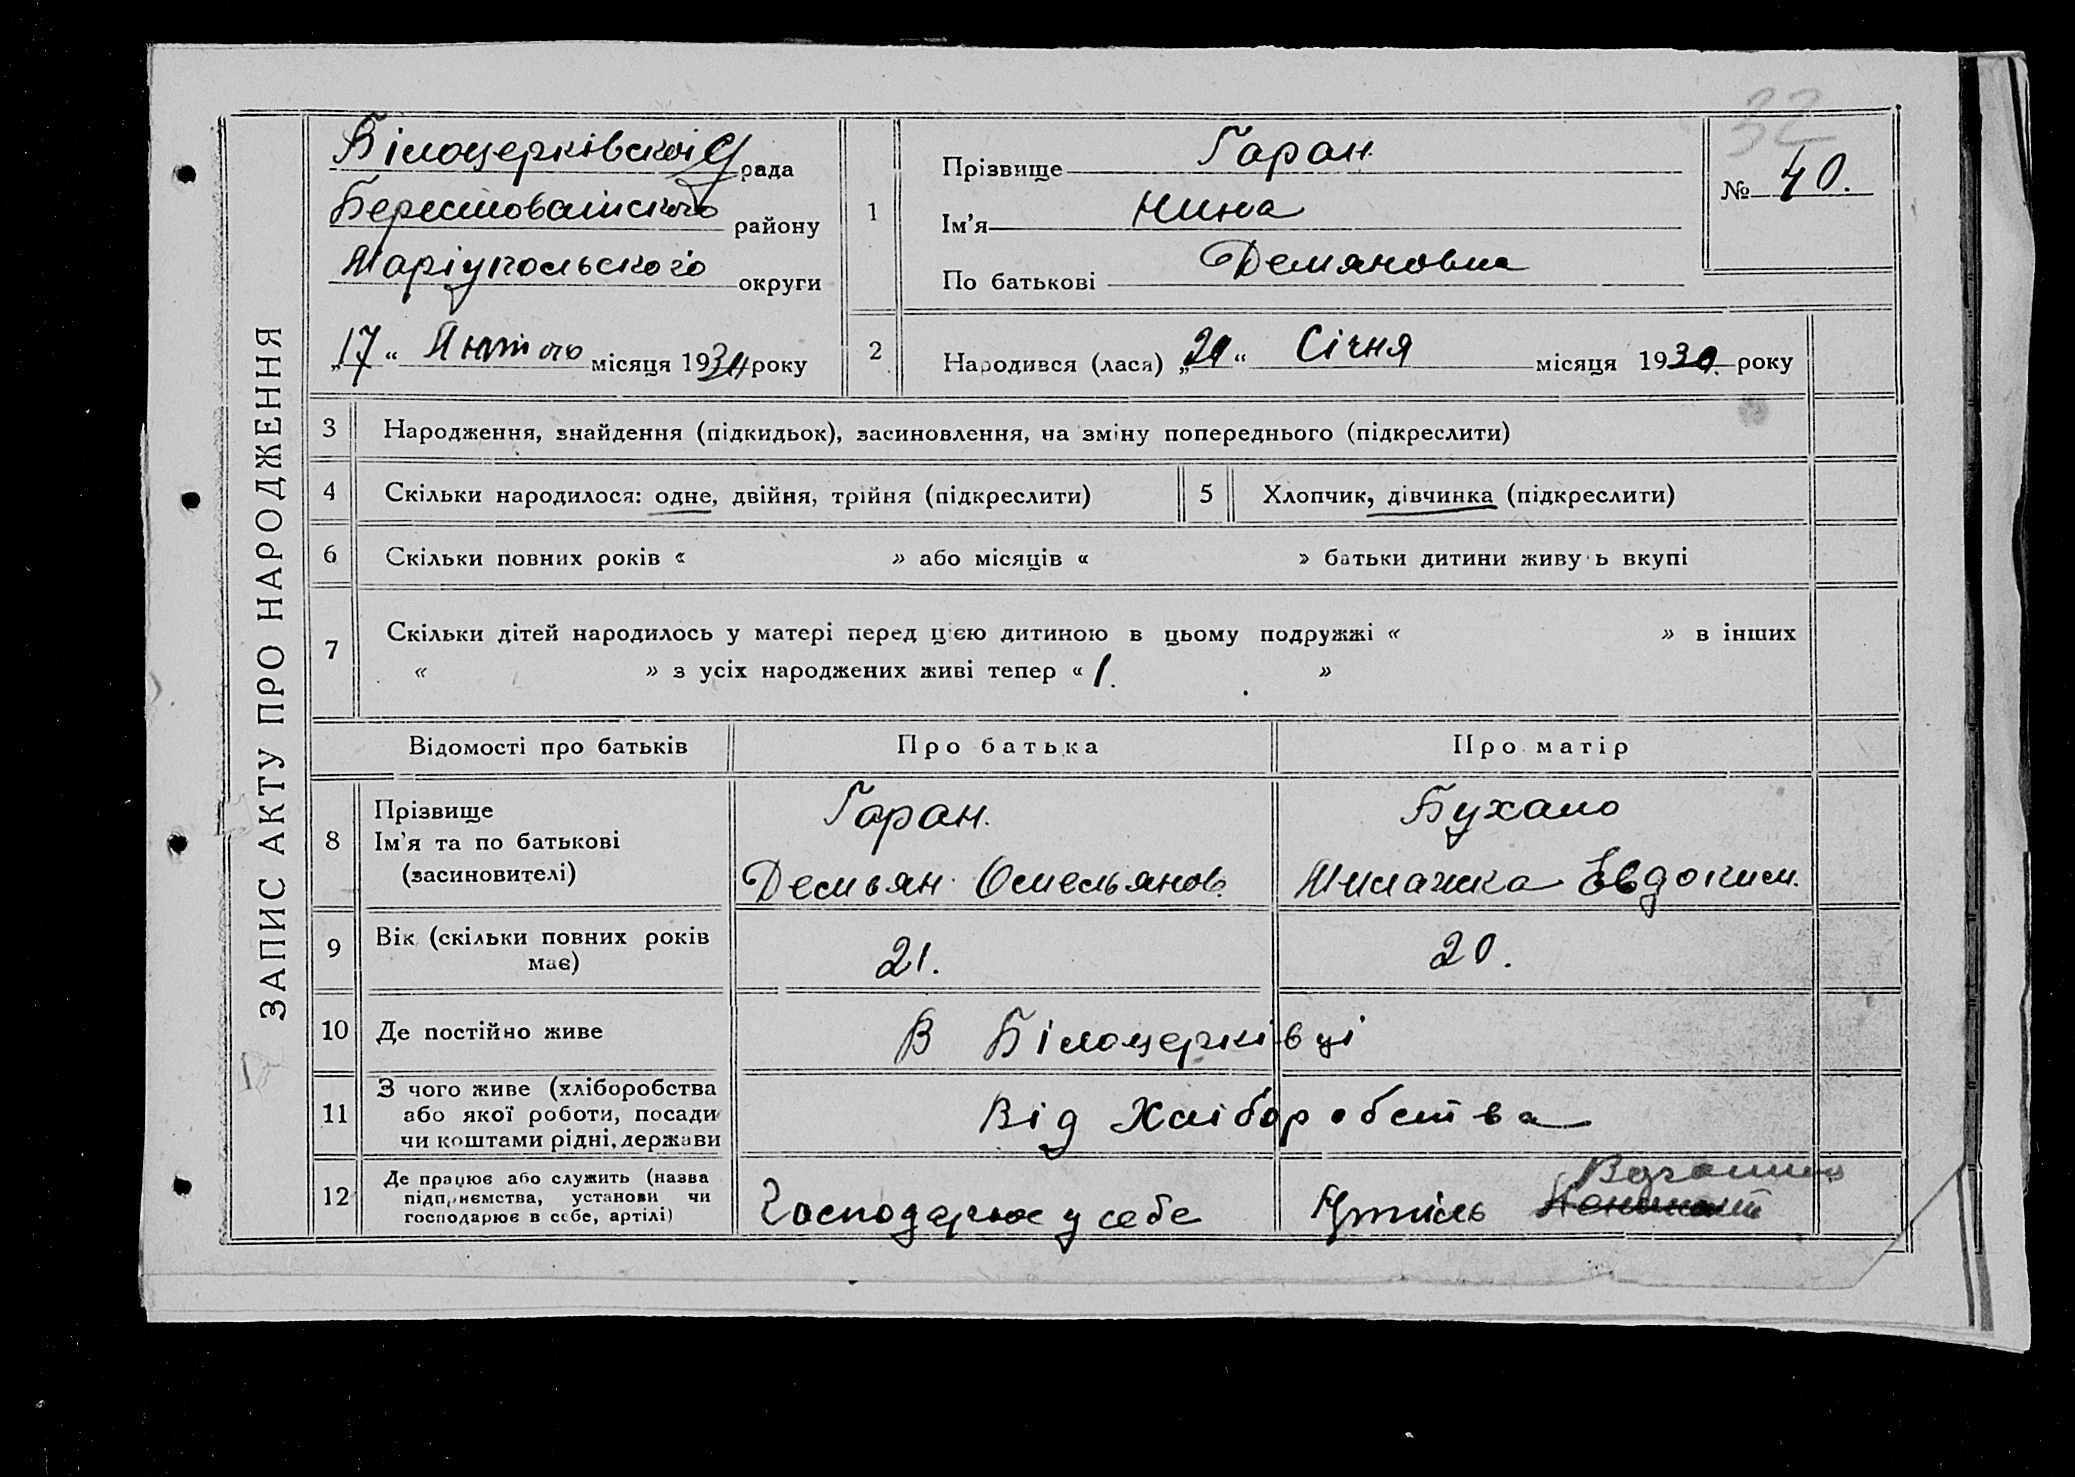 32
ЗАПИС АКТУ ПРО НАРОДЖЕННЯ
Білоцерківской С/рада
Берестоваійского району
Маріупольського округи
„17“ Лютого місяця 1930 року
1
Прізвище Гаран.
Ім'я Нина
По батькові Демяновна
№ 40.
2
Народився (лася) „21“ Січня місяця 1930. року
3 Народження, знайдення (підкидьок), засиновлення, на зміну попереднього (підкреслити)
4 Скільки народилося: одне, двійня, трійня (підкреслити)
5 Хлопчик, дівчинка (підкреслити)
6 Скільки повних років « » або місяців « » батьки дитини живу ь вкупі
7 Скільки дітей народилось у матері перед цією дитиною в цьому подружжі « » в інших
« » з усіх народжених живі тепер « 1. »
Відомості про батьків Про батька Про матір
8 Прізвище
Ім'я та по батькові
(засиновителі)
Гаран.
Демьян Омельянов.
Бухало
Милашка Евдоким.
9 Вік (скільки повних років
має)
21. 20.
10 Де постійно живе В Білоцерківці
11 З чого живе (хліборобства
або якої роботи, посади
чи коштами рідні, держави
Від Хліборобства
12 Де працює або служить (назва
підприємства, установи чи
господарює в себе, артілі)
Господарює у себе